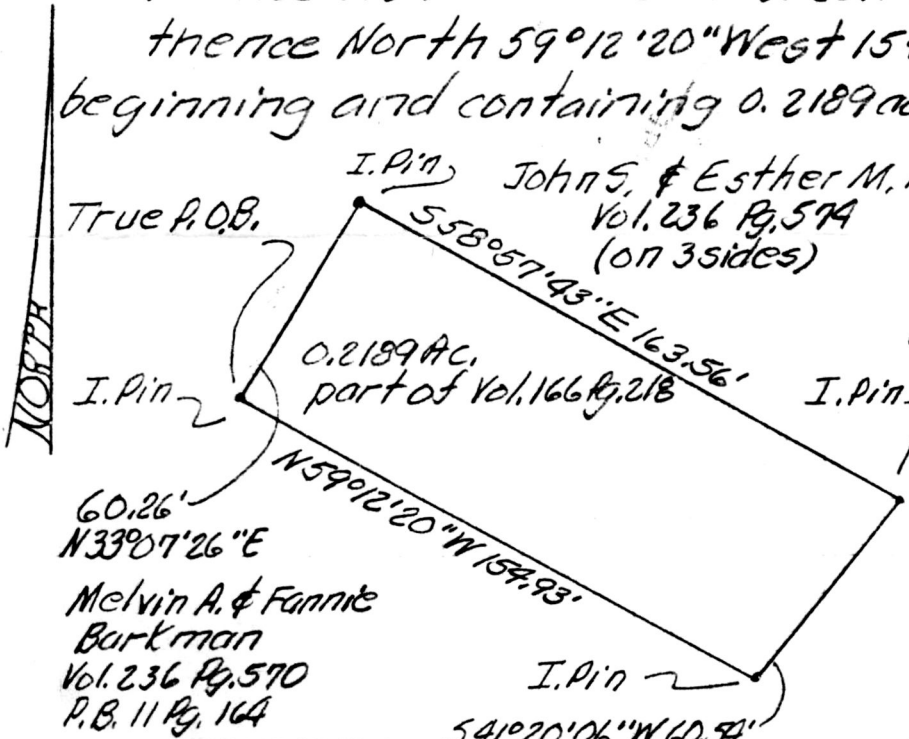 thence North 59°12'20" West 15
beginning and containing 0.2189 ac
I.Pin
John S. & Esther M.
Vol. 236 Pg. 574
(on 3 sides)
True P.O.B.
S58°57'43"E 163.56'
NORTH
0.2189 Ac.
part of Vol. 166 Pg. 218
I.Pin
I.Pin
N59°12'20"W 154.93'
60.26'
N33°07'26"E
Melvin A. & Fannie
Barkman
Vol. 236 Pg. 570
P.B. 11 Pg. 164
I.Pin
S41°20'06"W 60.54'